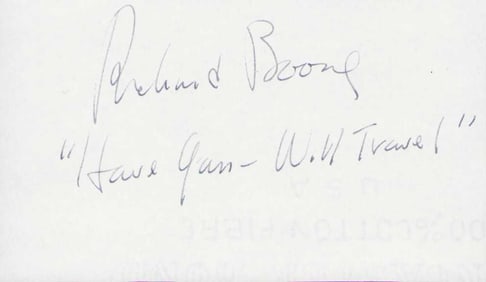 Richard Boone
"Have Gun - Will Travel"